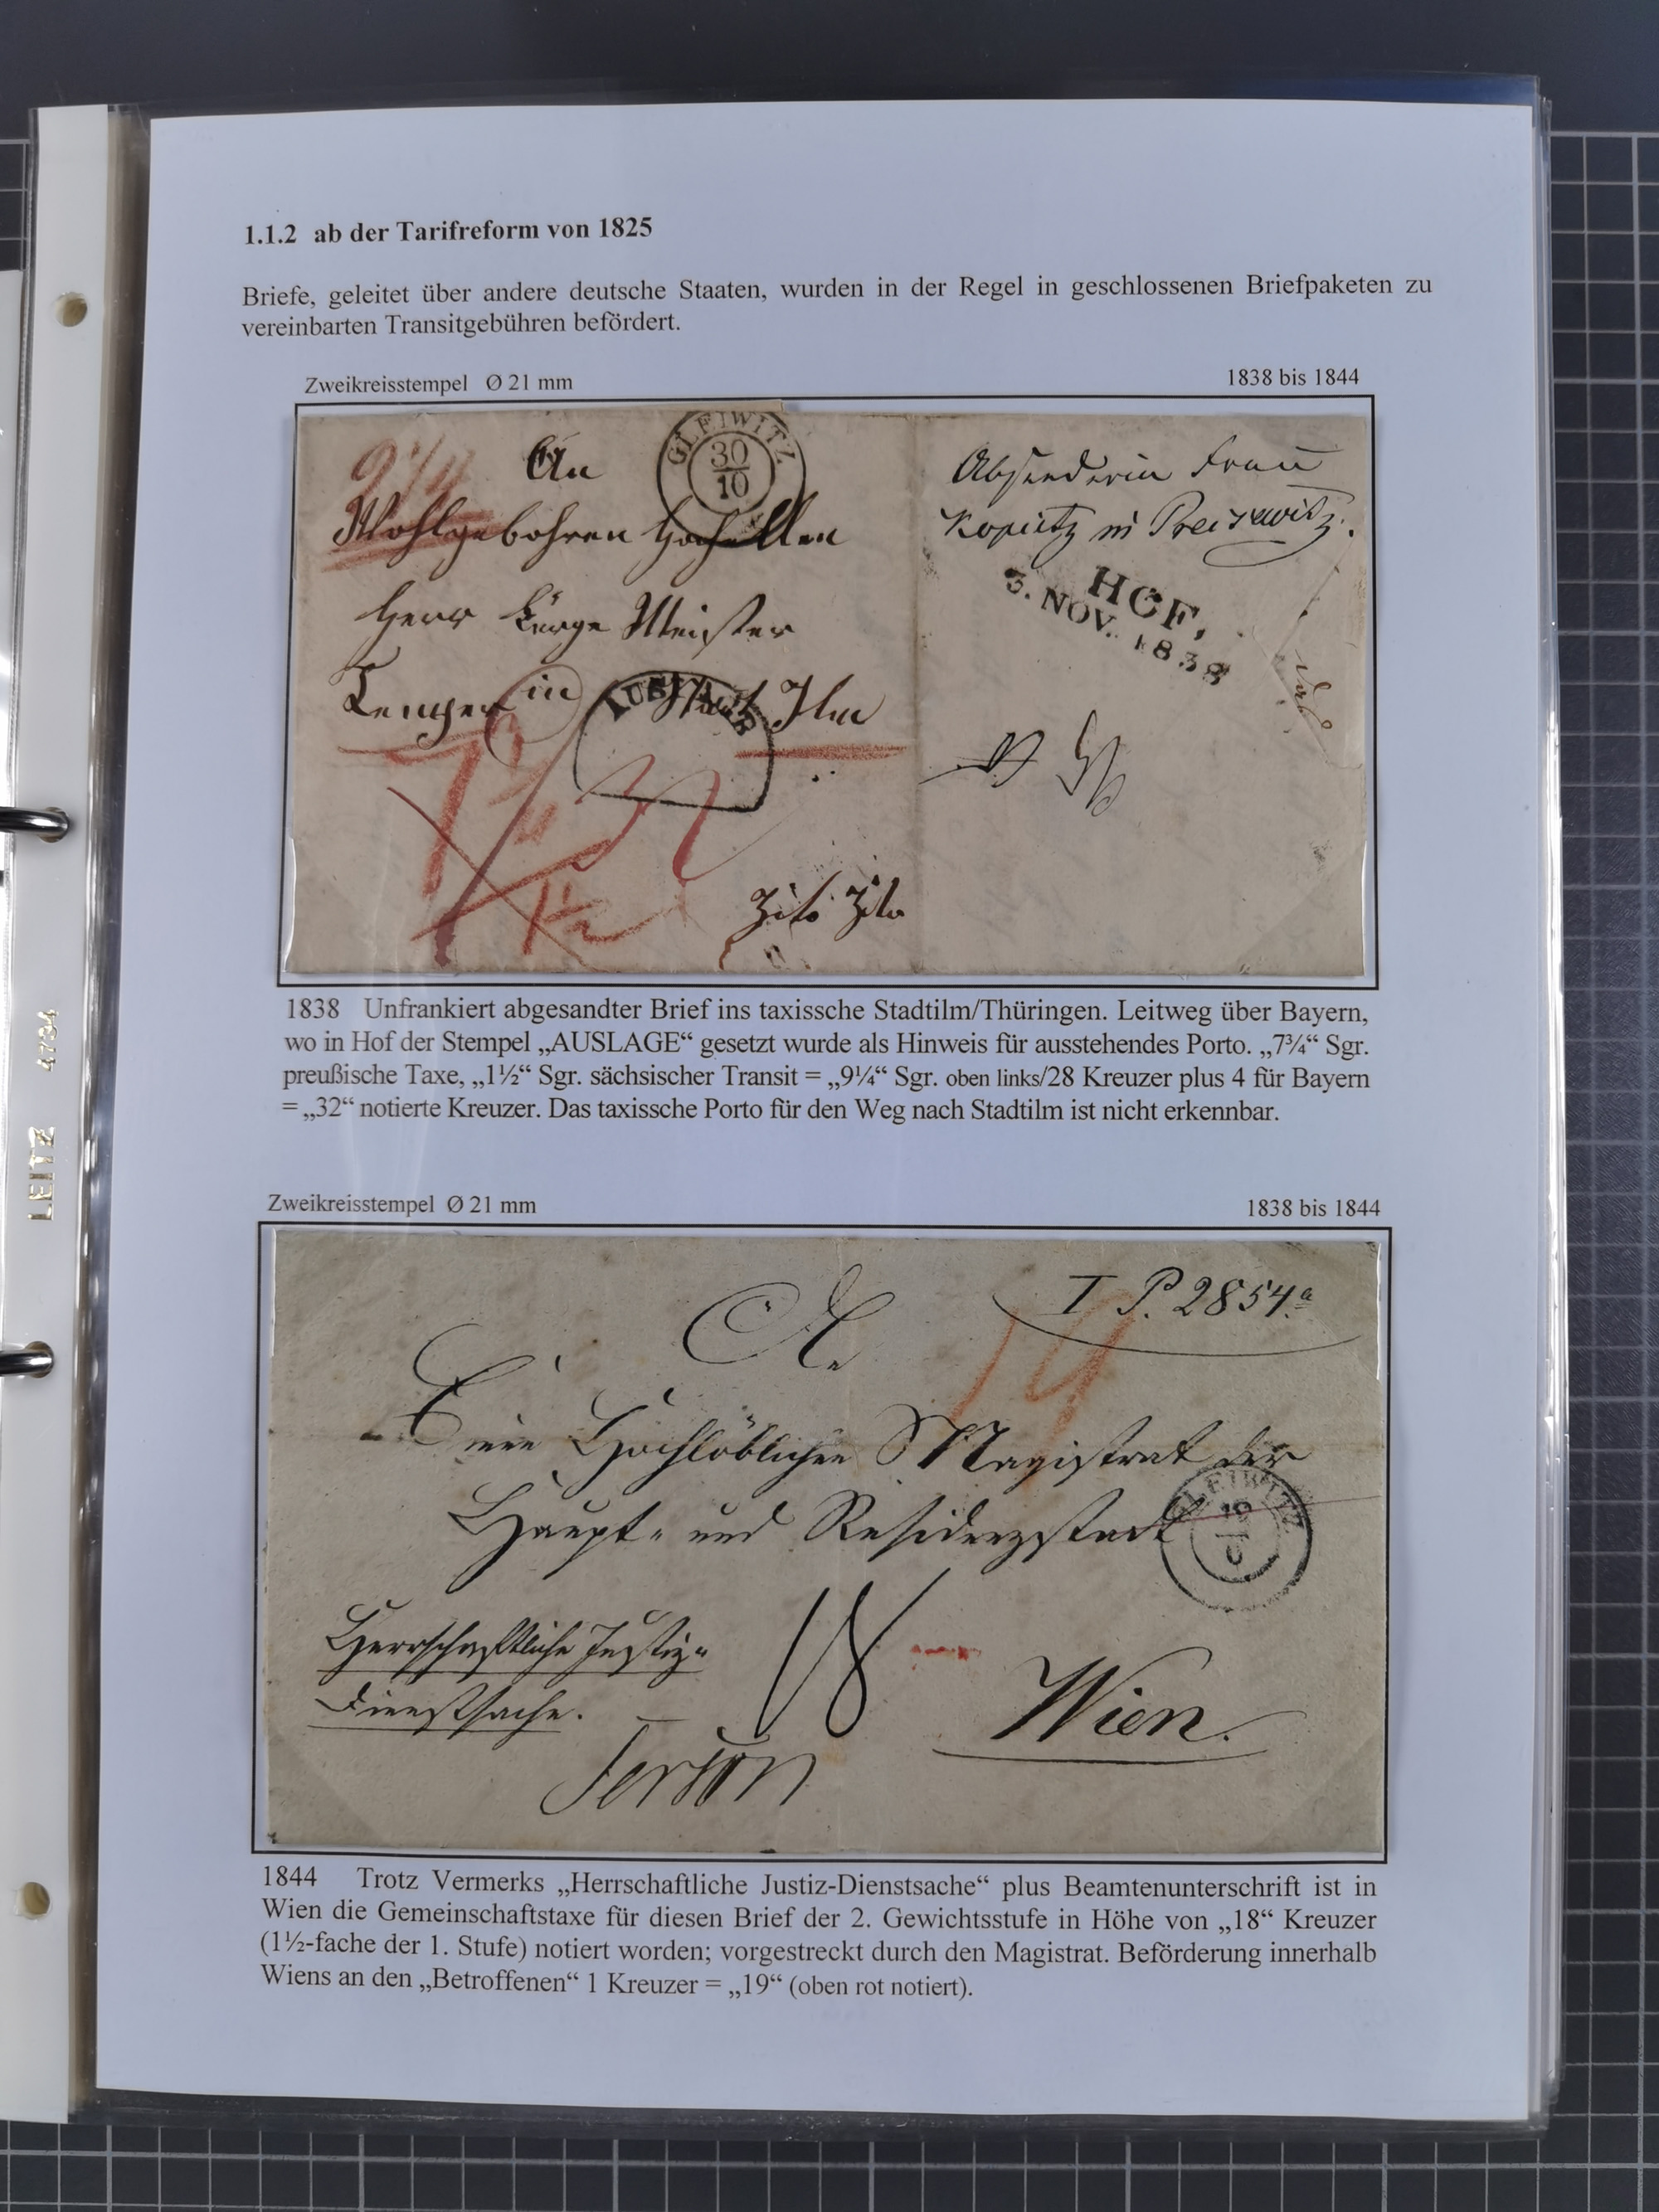 1.1.2 ab der Tarifreform von 1825
Briefe, geleitet über andere deutsche Staaten, wurden in der Regel in geschlossenen Briefpaketen zu
vereinbarten Transitgebühren befördert.
Zweikreisstempel Ø 21 mm
1838 bis 1844
9¼
An
GLEIWITZ
30
10
Wohlgebohren
Herr Bürge Meister
in Stadt Ilm
AUSLAGE
7¾
32
1½
Zito Zito
Absenderin Frau
in Preiswitz.
HOF,
3. NOV. 1838
1838 Unfrankiert abgesandter Brief ins taxissche Stadtilm/Thüringen. Leitweg über Bayern,
wo in Hof der Stempel „AUSLAGE“ gesetzt wurde als Hinweis für ausstehendes Porto. „7¾“ Sgr.
preußische Taxe, „1½“ Sgr. sächsischer Transit = „9¼“ Sgr. oben links/28 Kreuzer plus 4 für Bayern
= „32“ notierte Kreuzer. Das taxissche Porto für den Weg nach Stadtilm ist nicht erkennbar.
Zweikreisstempel Ø 21 mm
1838 bis 1844
I P. 2854.a
19
An
Einen Hochlöblichen Magistrat der
Haupt- und Residenzstadt
GLEIWITZ
Herrschaftliche Justiz-
Dienstsache.
18
Wien.
1844 Trotz Vermerks „Herrschaftliche Justiz-Dienstsache“ plus Beamtenunterschrift ist in
Wien die Gemeinschaftstaxe für diesen Brief der 2. Gewichtsstufe in Höhe von „18“ Kreuzer
(1½-fache der 1. Stufe) notiert worden; vorgestreckt durch den Magistrat. Beförderung innerhalb
Wiens an den „Betroffenen“ 1 Kreuzer = „19“ (oben rot notiert).
LEITZ 4794